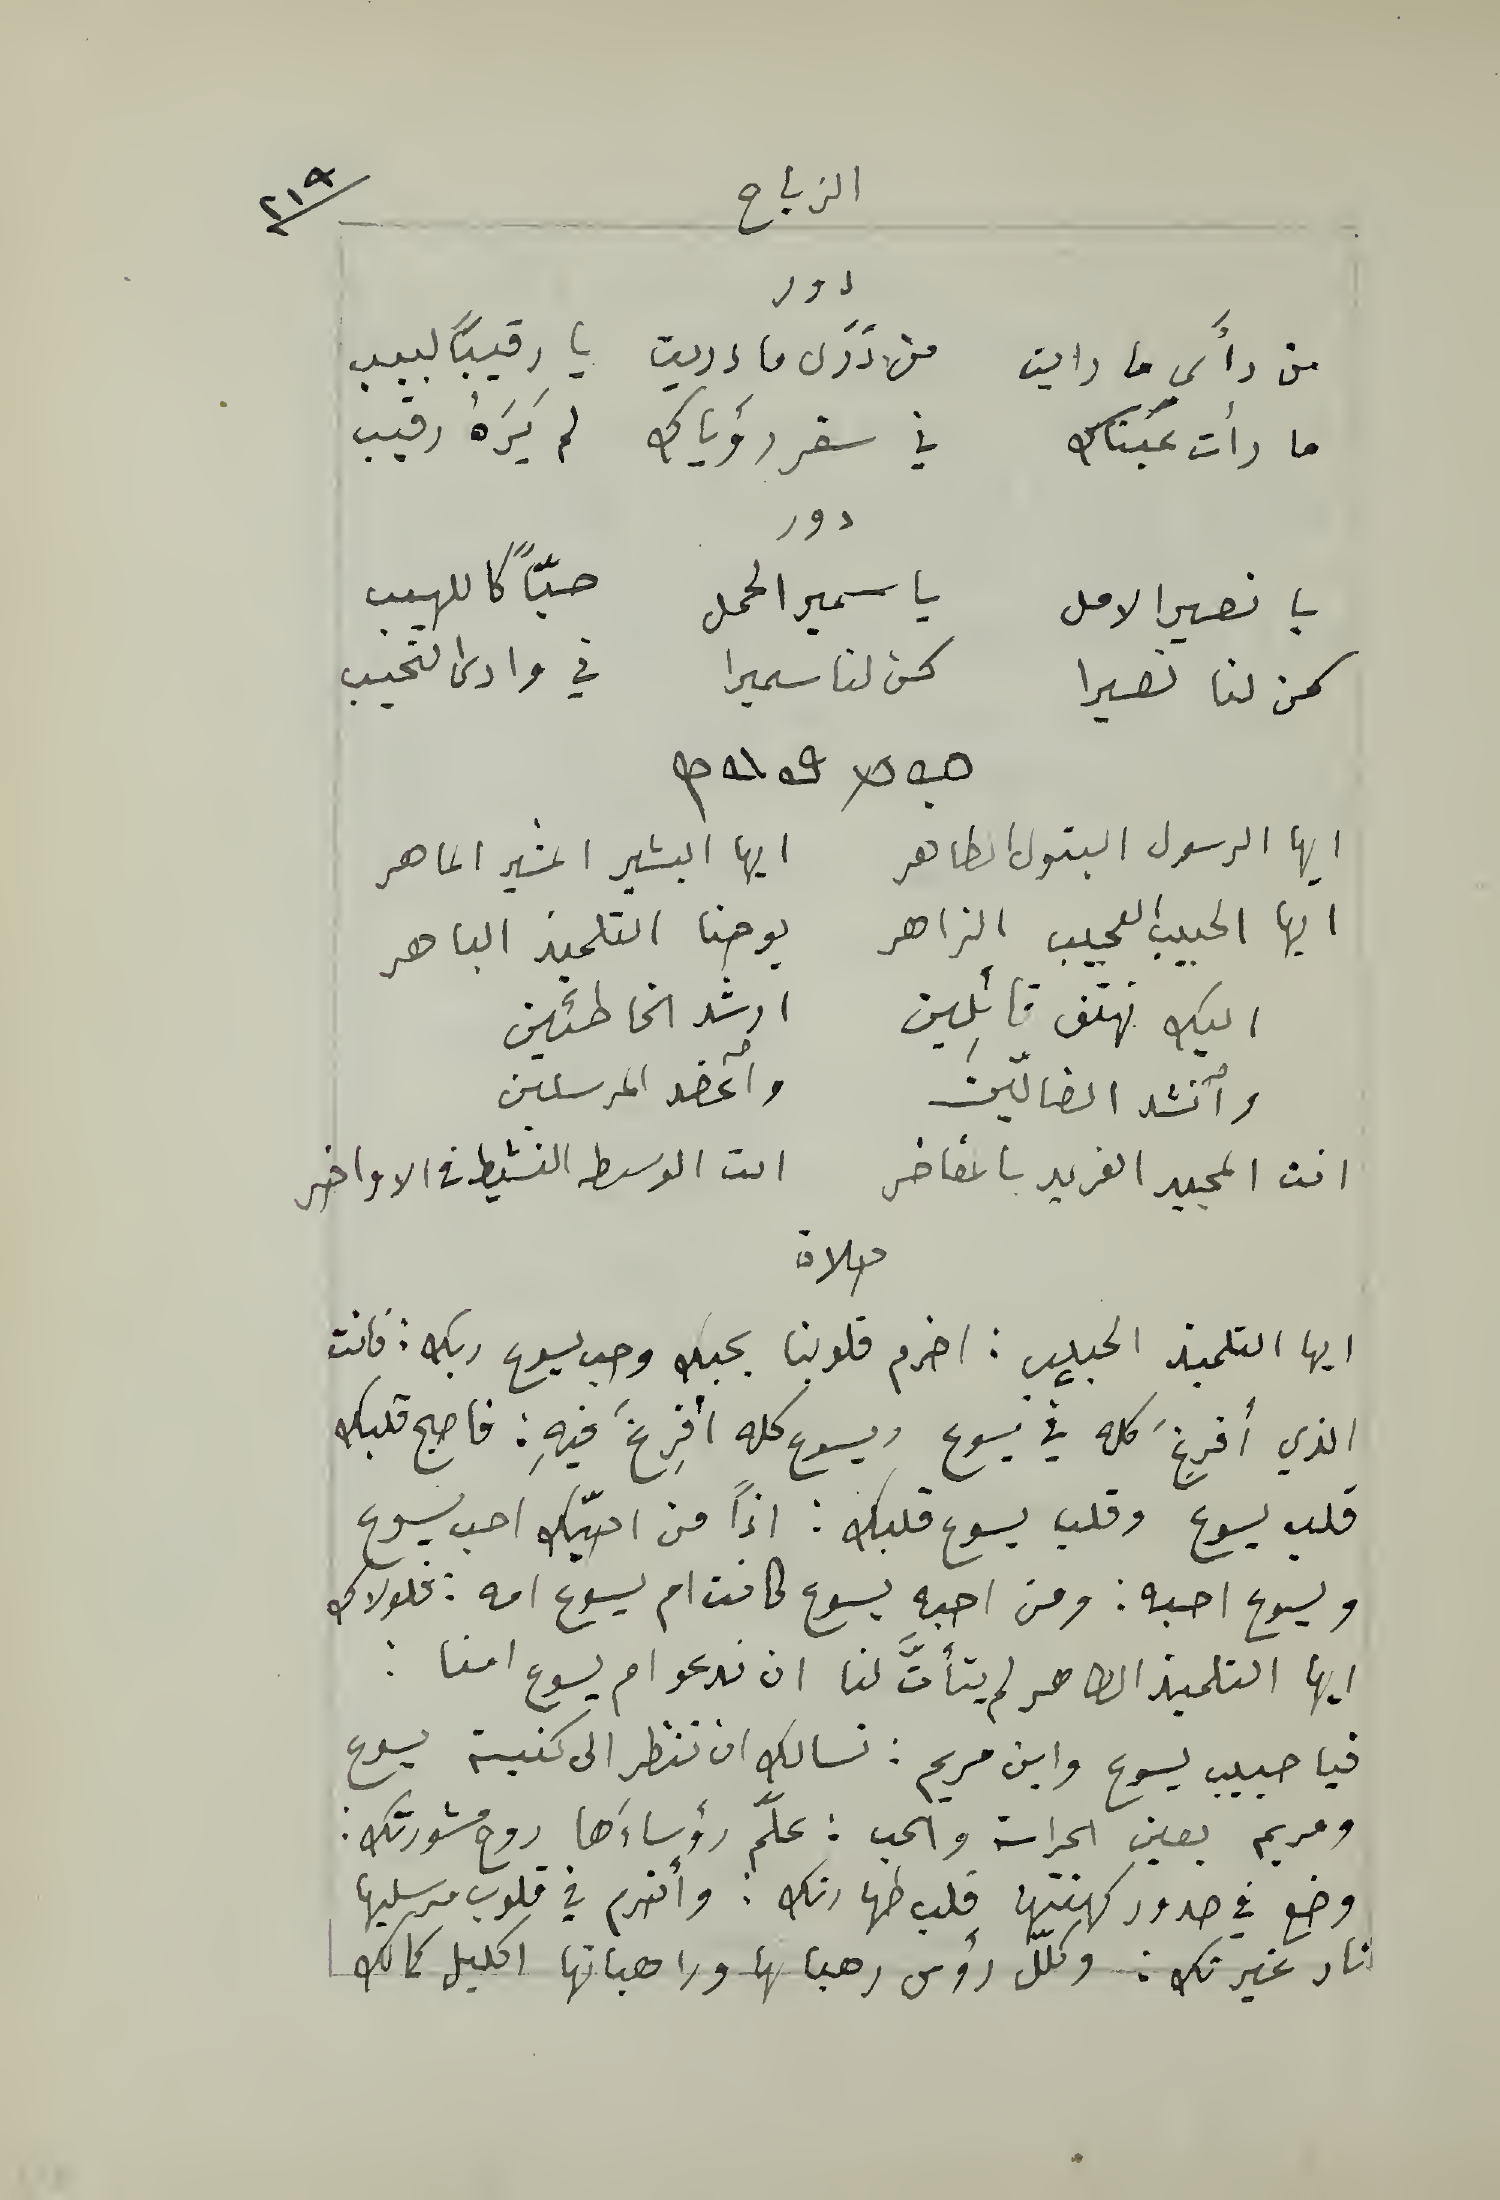 الزياح
٢١٩
دور
من رأى ما رايت من دَرَى ما دريت يا رقيبًا لبيب
ما رأت عيناك في سفر رؤياك لم يَرَهُ رقيب
دور
يا نصير الامل يا سمير الحمل حبّاً كاللهيب
كن لنا نصيرا كن لنا سميرا في وادى النحيب
ايها الرسول البتول الطاهر ايها البشير المنير الماهر
ايها الحبيب العجيب الزاهر يوحنا التلميذ الباهر
اليك نهتف قائلين ارشد الخاطئين
وأنشد الضالّين وأعضد المرسلين
انت المجيد الفريد بالمفاخر انت الوسيط النشيط في الاواخر
صلاة
ايها التلميذ الحبيب : اضرم قلوبنا بحبك وحب يسوع ربك : فانت
الذي أفرِغَ كله في يسوع ويسوع كله أفرِغَ فيهِ : فاصبح قلبك
قلب يسوع وقلب يسوع قلبك : اذاً من احبّك احب يسوع
ويسوع احبه : ومن احبه يسوع كانت ام يسوع امه : فلولاك
ايها التلميذ الطاهر لم يتأتَّ لنا ان ندعو ام يسوع امنا :
فيا حبيب يسوع وابن مريم : نسالك ان تنظر الى كنيسة يسوع
ومريم بعين الحراسة والحب : علّم رؤساءَها روح مشورتك :
وضع في صدور كهنتها قلب طهارتك : وأضرم في قلوب مرسليها
نار غيرتك : وكلّل رؤس رهبانها وراهباتها اكليل كمالك